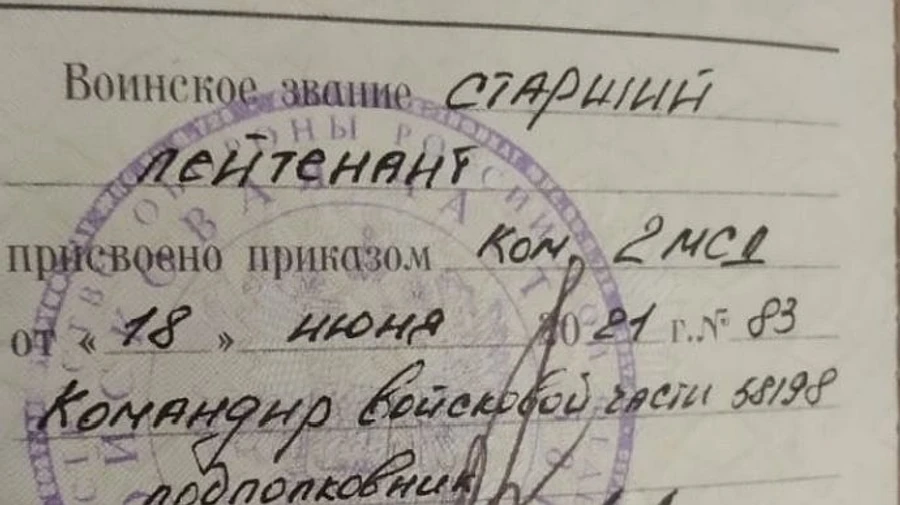 Воинское звание старший
лейтенант
присвоено приказом ком. 2 мсд
от « 18 » июня 2021 г. № 83
Командир войсковой части 58198
подполковник